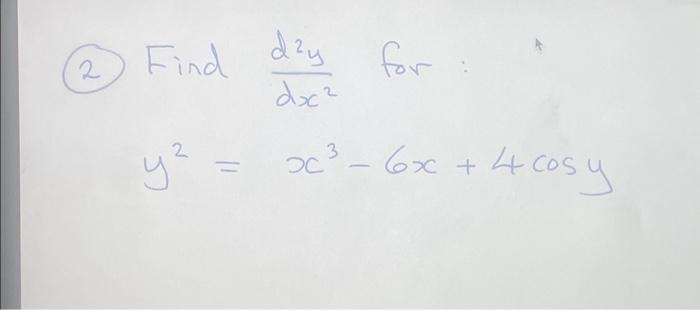 ② Find d²y/dx² for :
y² = x³ - 6x + 4 cos y